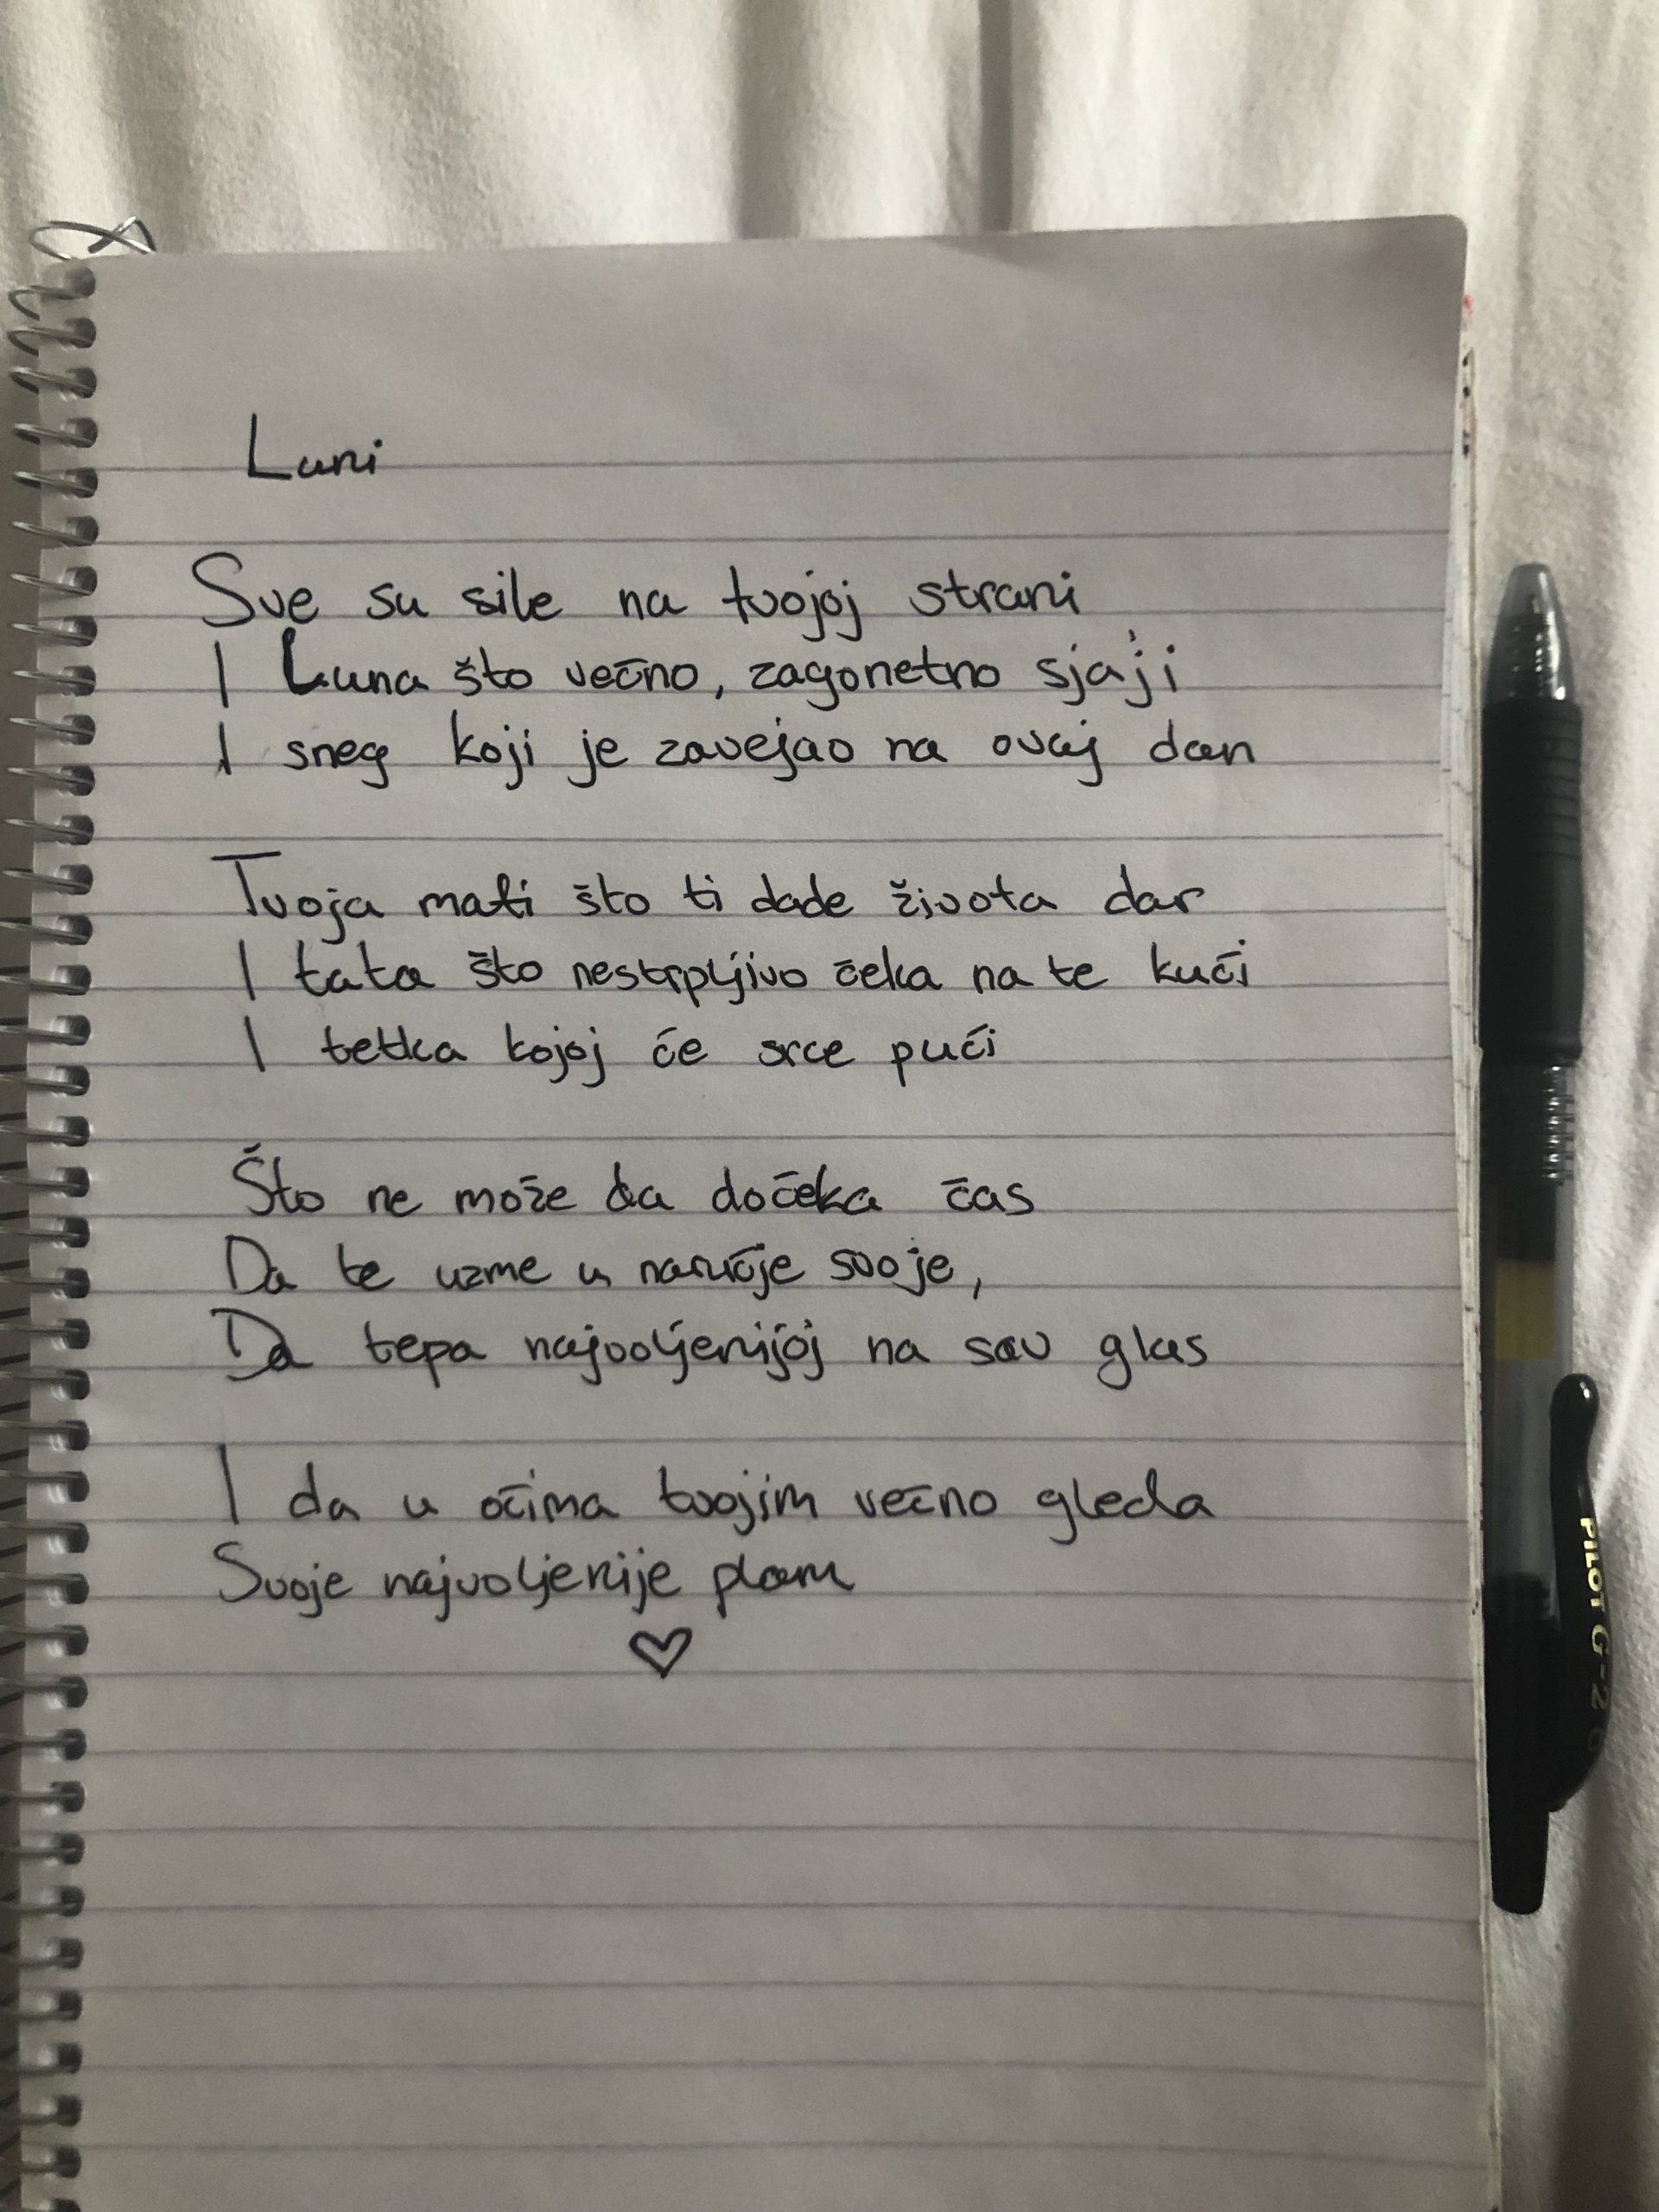 Luni
Sve su sile na tvojoj strani
I Luna što večno, zagonetno sjaji
I sneg koji je zavejao na ovaj dan
Tvoja mati što ti dade života dar
I tata što nestrpljivo čeka na te kući
I tetka kojoj će srce pući
Što ne može da dočeka čas
Da te uzme u naručje svoje,
Da tepa najvoljenijoj na sav glas
I da u očima tvojim večno gleda
Svoje najvoljenije plam
♡
PILOT G-2